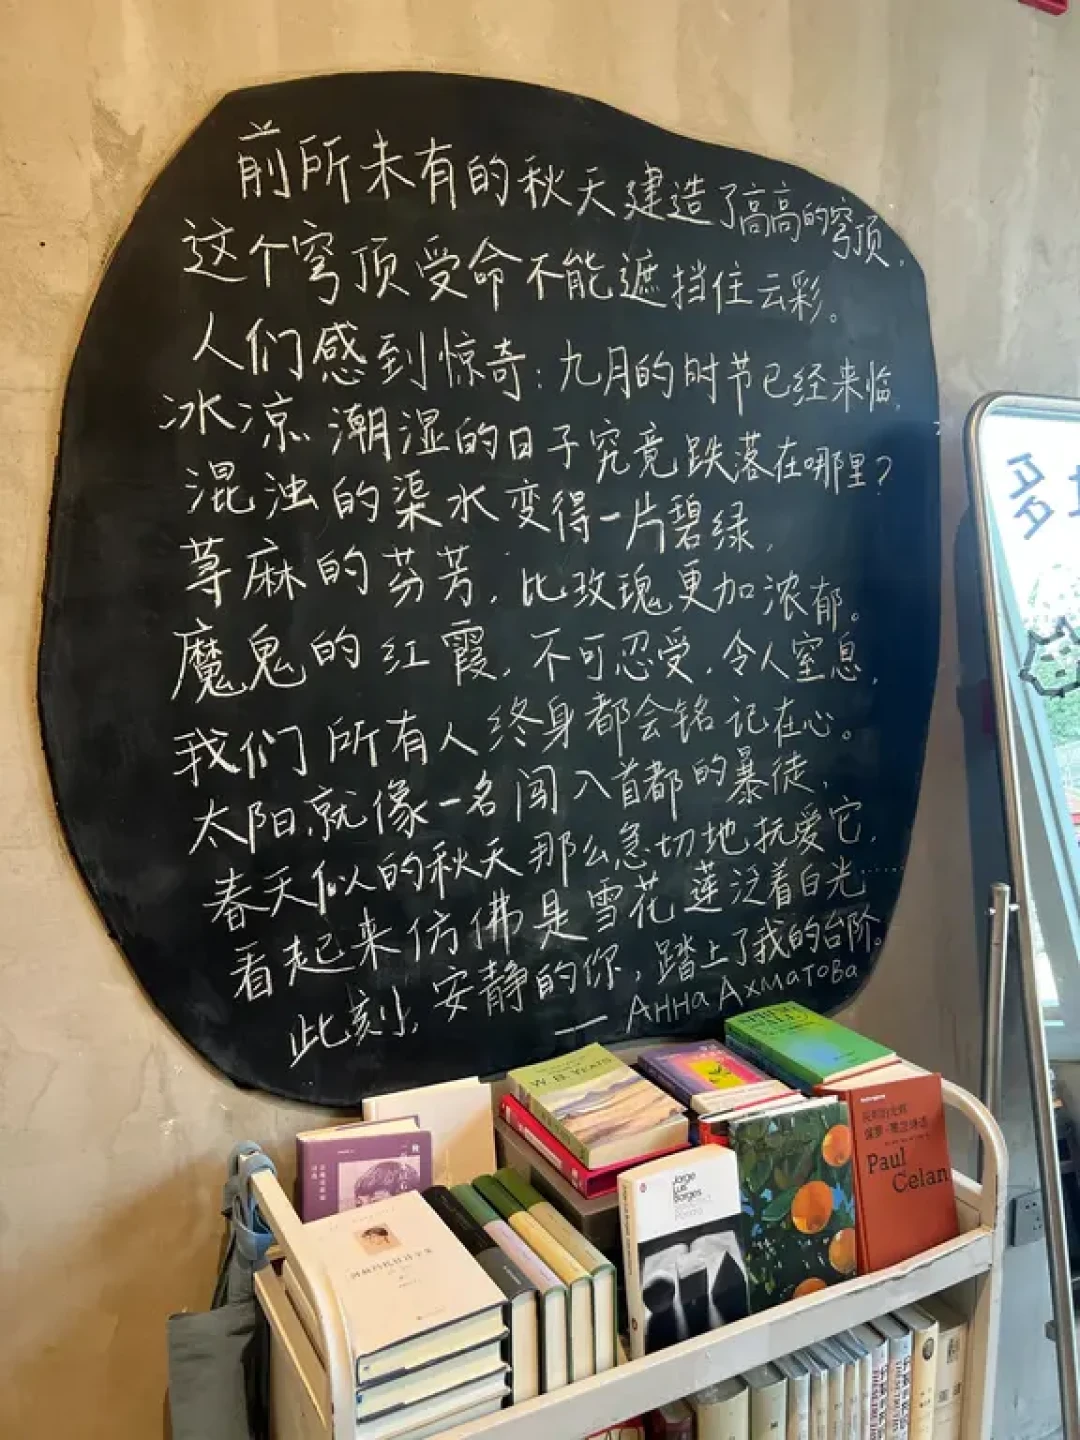 前所未有的秋天建造了高高的穹顶，
这个穹顶受命不能遮挡住云彩。
人们感到惊奇：九月的时节已经来临，
冰凉、潮湿的日子究竟跌落在哪里？
混浊的渠水变得一片碧绿，
荨麻的芬芳，比玫瑰更加浓郁。
魔鬼的红霞，不可忍受，令人窒息，
我们所有人终身都会铭记在心。
太阳，就像一名闯入首都的暴徒，
春天似的秋天那么急切地抚爱它，
看起来仿佛是雪花莲泛着白光……
此刻，安静的你，踏上了我的台阶。
—— Анна Ахматова
W. B. Yeats
Jorge
Luis
Borges
Paul
Celan